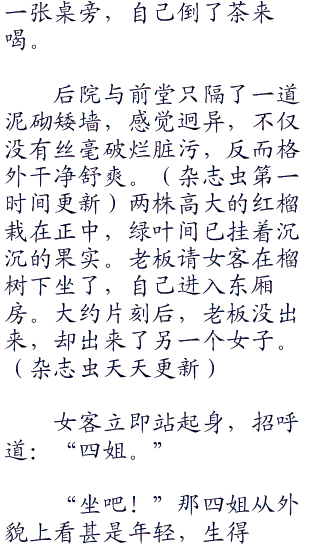 一张桌旁，自己倒了茶来
喝。
后院与前堂只隔了一道
泥砌矮墙，感觉迥异，不仅
没有丝毫破烂脏污，反而格
外干净舒爽。（杂志虫第一
时间更新）两株高大的红榴
栽在正中，绿叶间已挂着沉
沉的果实。老板请女客在榴
树下坐了，自己进入东厢
房。大约片刻后，老板没出
来，却出来了另一个女子。
（杂志虫天天更新）
女客立即站起身，招呼
道：“四姐。”
“坐吧！”那四姐从外
貌上看甚是年轻，生得